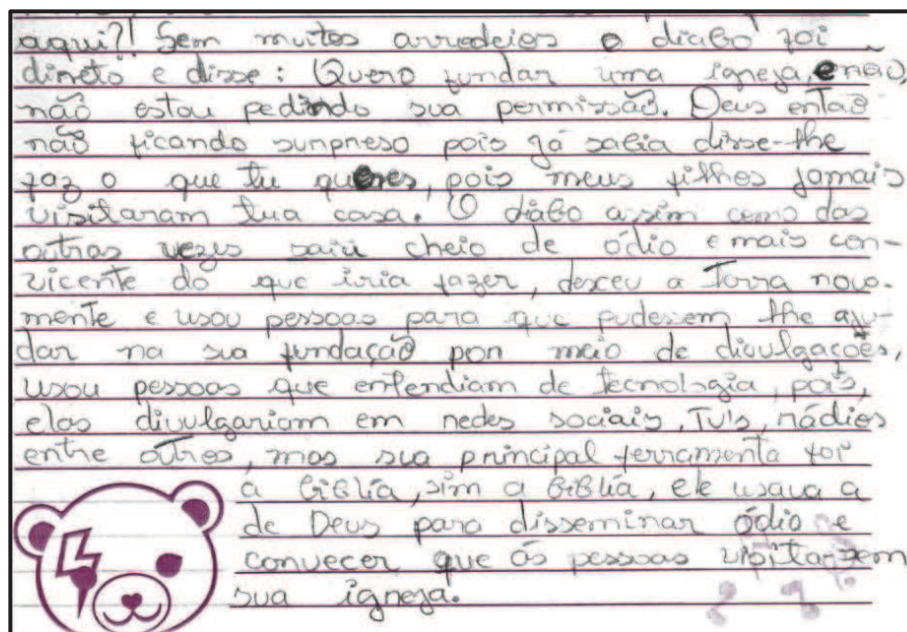 aqui?! Sem muitos arrodeios o diabo foi
direto e disse: Quero fundar uma igreja, e não,
não estou pedindo sua permissão. Deus então
não ficando surpreso pois já sabia disse-lhe
faz o que tu queres, pois meus filhos jamais
visitaram tua casa. O diabo assim como das
outras vezes saiu cheio de ódio e mais con-
vicente do que iria fazer, desceu a Terra nova-
mente e usou pessoas para que pudessem lhe aju-
dar na sua fundação por meio de divulgações,
usou pessoas que entendiam de tecnologia, pois,
elas divulgariam em redes sociais, Tv's, rádios
entre outros, mas sua principal ferramenta foi
a biblía, sim a biblía, ele usava a
de Deus para disseminar ódio e
convecer que as pessoas visitarem
sua igreja.